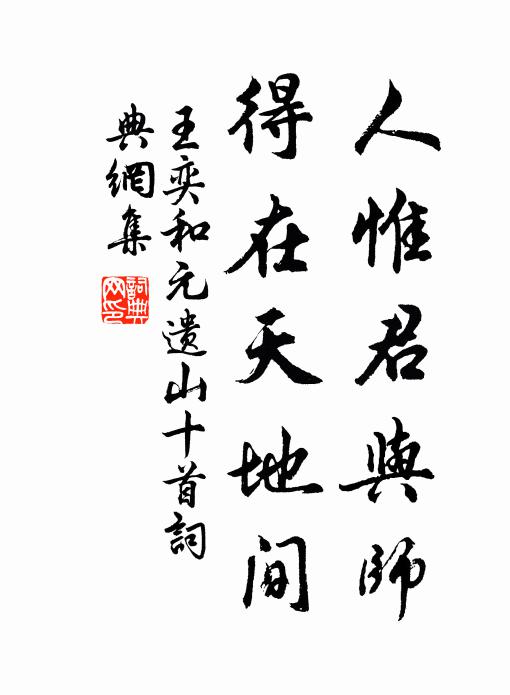 人惟君與師
得在天地間
王奕和元遗山十首詞
典網集
詞典网印